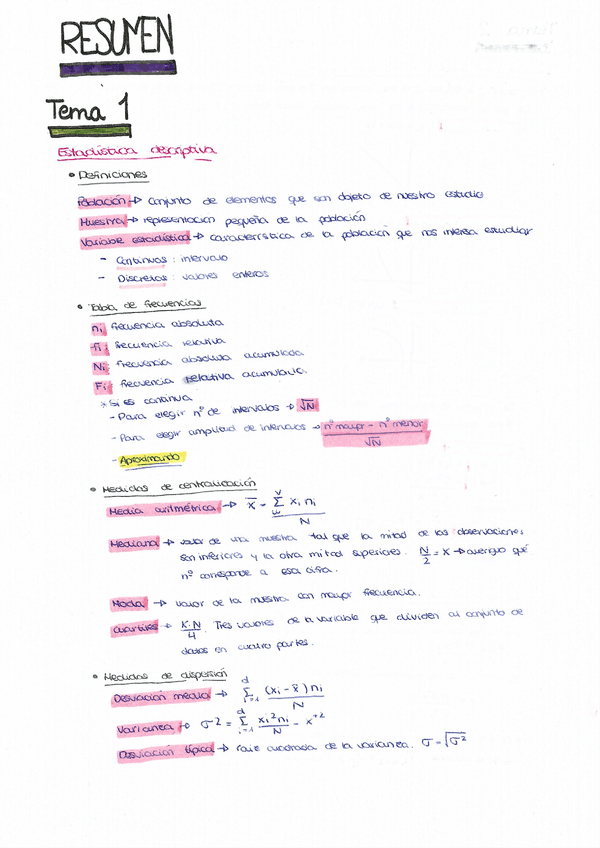 RESUMEN
Tema 1
Estadística descriptiva
• Definiciones
Población → Conjunto de elementos que son objeto de nuestro estudio
Muestra → representación pequeña de la población
Variable estadística → característica de la población que nos interesa estudiar
- Continuas: intervalo
- Discretas: valores enteros
• Tabla de frecuencias
ni: frecuencia absoluta
fi: frecuencia relativa
Ni: frecuencia absoluta acumulada
Fi: frecuencia relativa acumulada.
* Si es continua
- Para elegir nº de intervalos → √N
- Para elegir amplitud de intervalos → nº mayor - nº menor / √N
- Aproximando
• Medidas de centralización
Media aritmétrica → x̄ = Σ xi ni / N
Mediana → valor de una muestra tal que la mitad de las observaciones
son inferiores y la otra mitad superiores. N/2 = x → averiguo qué
nº corresponde a esa cifra.
Moda → valor de la muestra con mayor frecuencia.
Cuartiles → K·N/4. Tres valores de la variable que dividen al conjunto de
datos en cuatro partes.
• Medidas de dispersión
Desviación media → d Σ i=1 (xi - x̄) ni / N
Varianza → σ2 = d Σ i=1 xi² ni / N - x⁺²
Desviación típica → raíz cuadrada de la varianza. σ = √σ²